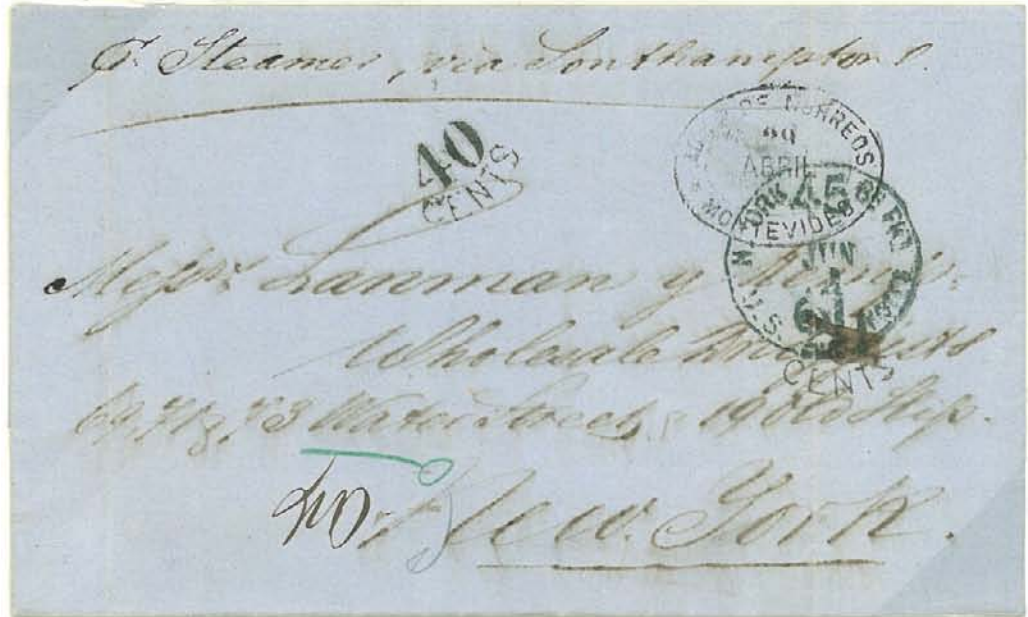 Pr. Steamer, via Southampton.
40
CENTS
DE CORREOS
29
ABRIL
MONTEVIDEO
N. YORK 45 BR PKT
JUN
U.S.
CENTS
Messrs Lanman y Kemp.
Wholesale Druggists
69, 71 y 73 Water Street, 19 Old Slip.
40
New-York.